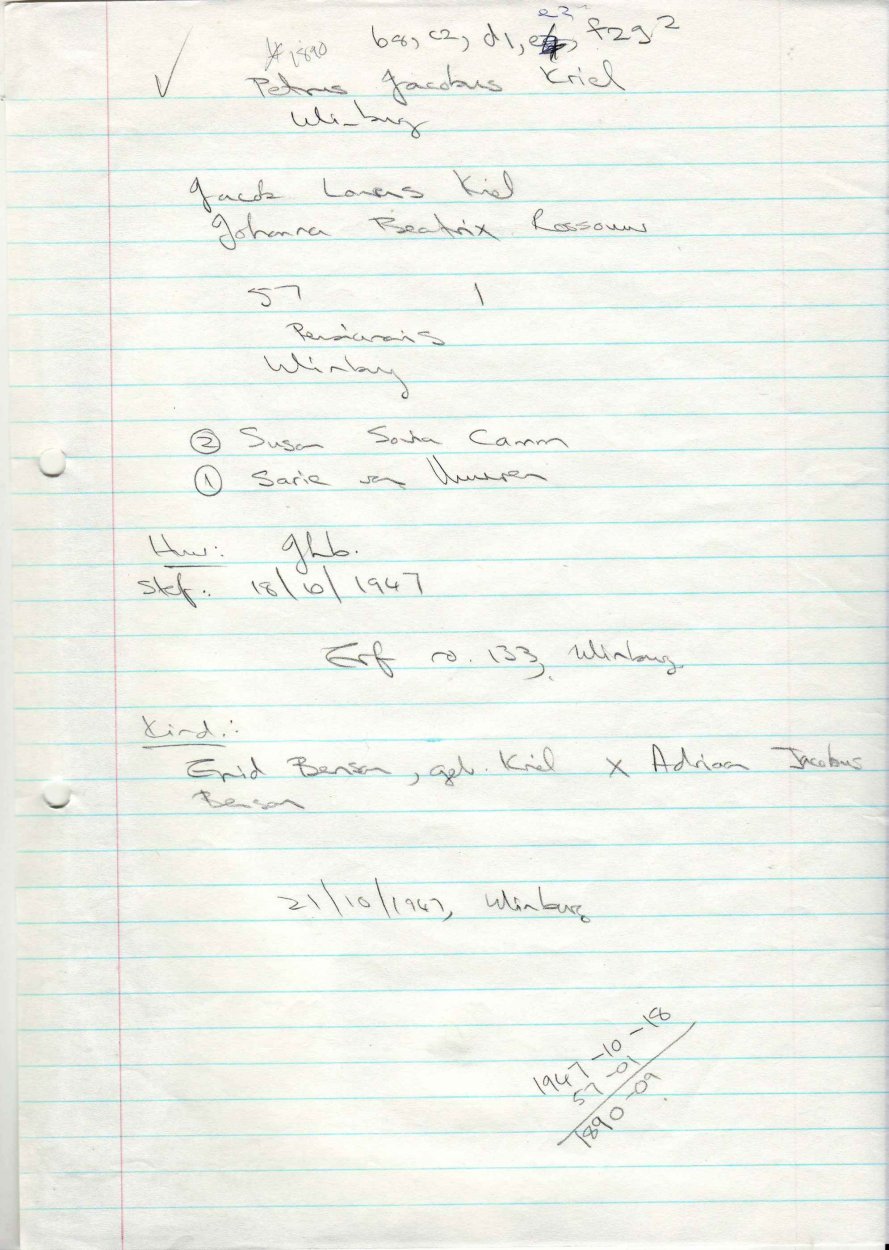 e2
b8, c2, d1, f2g2
* 1890
Petrus Jacobus Kriel
Winburg
Jacob Lourens Kriel
Johanna Beatrix Rossouw
57 1
Pensionaris
Winburg
② Susan Camm
① Sarie van Vuuren
Hw: ghb.
Sterf: 18/10/1947
Erf no. 133, Winburg
Kind.:
Enid Benson, geb. Kriel x Adriaan Jacobus
Benson
21/10/1947, Winburg
1947-10-18
57-01
1890-09